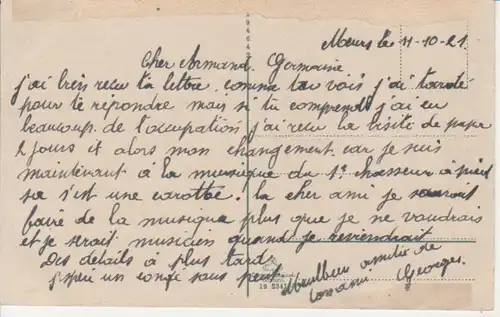 Mœurs le 11-10-21
Cher Armand. Germaine
j'ai bien recu ta lettre. comme tu vois j'ai tardé
pour te répondre mais si tu comprends j'ai eu
beaucoup de l'occupation j'ai recu la visite de papa
2 jours et alors mon changement car je suis
maintenant à la musique du 1e chasseur à pied
sa s'est une carotte. la cher ami je saurait
faire de la musique plus que je ne voudrais
et je serait musicien quand je reviendrait
Des détails à plus tard
j'espère un congé sans peut
Meilleur amitié de
ton ami Georges.